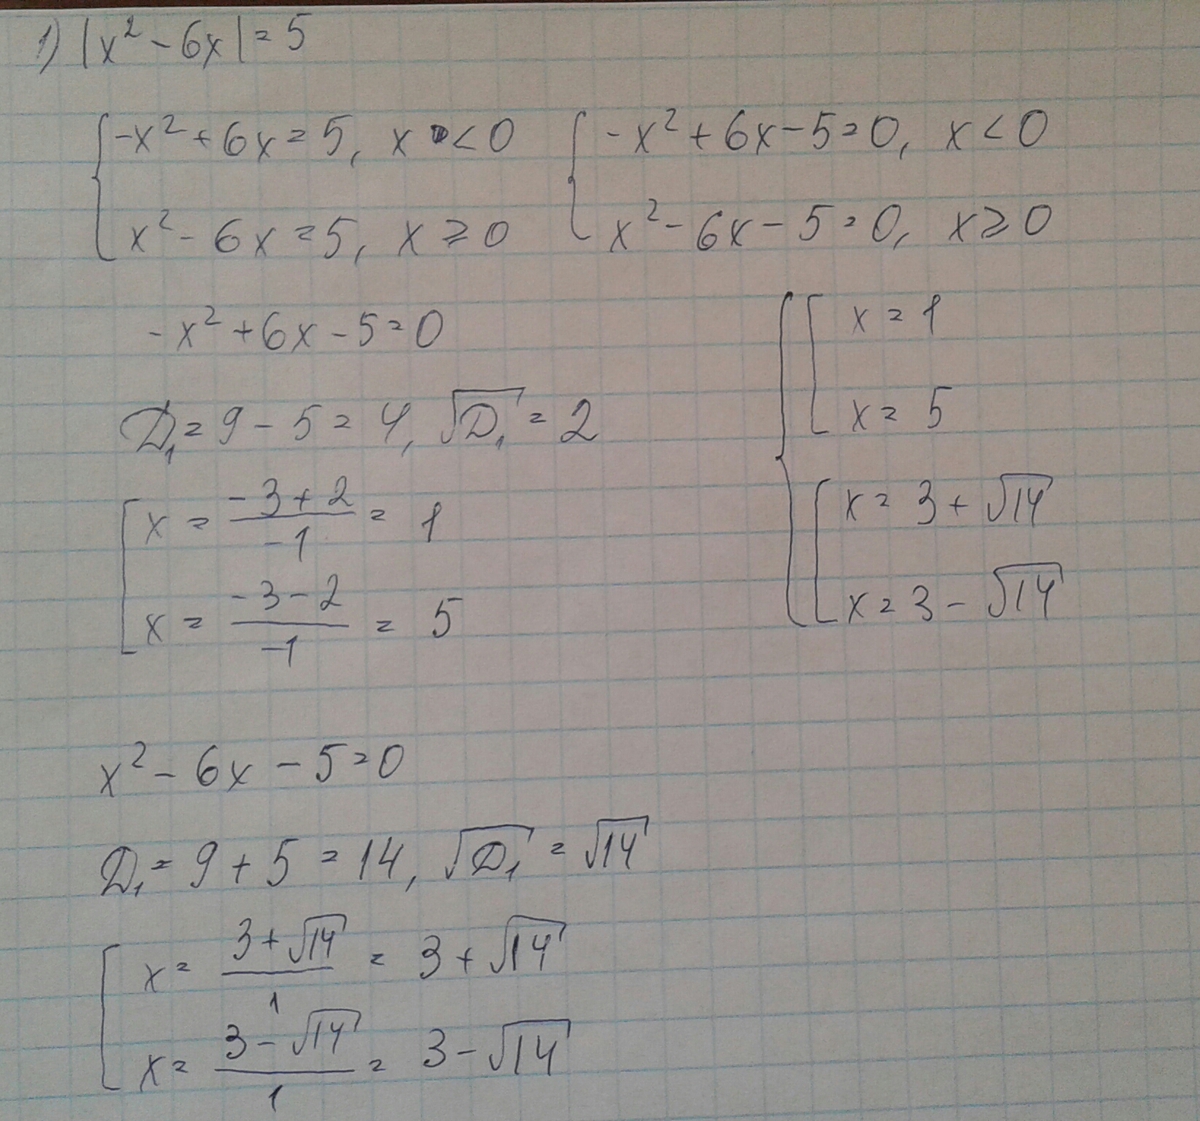 1) |x² - 6x| = 5
{ -x² + 6x = 5, x < 0
{ x² - 6x = 5, x ⩾ 0
{ -x² + 6x - 5 = 0, x < 0
{ x² - 6x - 5 = 0, x ⩾ 0
-x² + 6x - 5 = 0
D₁ = 9 - 5 = 4, √D₁ = 2
[ x = (-3 + 2)/(-1) = 1
[ x = (-3 - 2)/(-1) = 5
{ [ x = 1
[ x = 5
{ [ x = 3 + √14
[ x = 3 - √14
x² - 6x - 5 = 0
D₁ = 9 + 5 = 14, √D₁ = √14
[ x = (3 + √14)/1 = 3 + √14
[ x = (3 - √14)/1 = 3 - √14